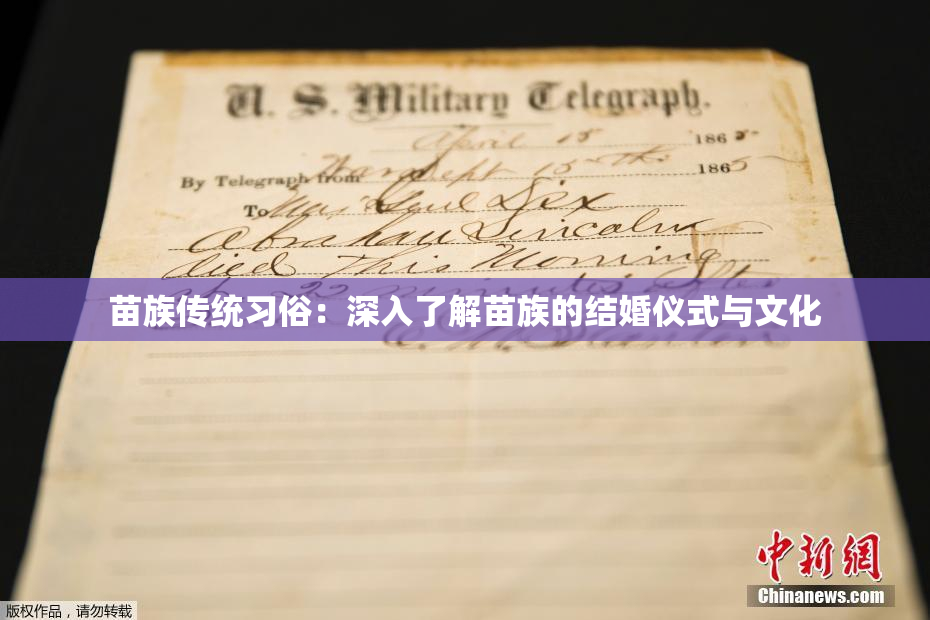 U. S. Military Telegraph.
April 15 1865
By Telegraph from War Dept 15th 1865
To Maj Genl Dix
Abraham Lincoln
died This Morning
at 22 minutes after
苗族传统习俗：深入了解苗族的结婚仪式与文化
E. M. Stanton
中新網
Chinanews.com
版权作品，请勿转载